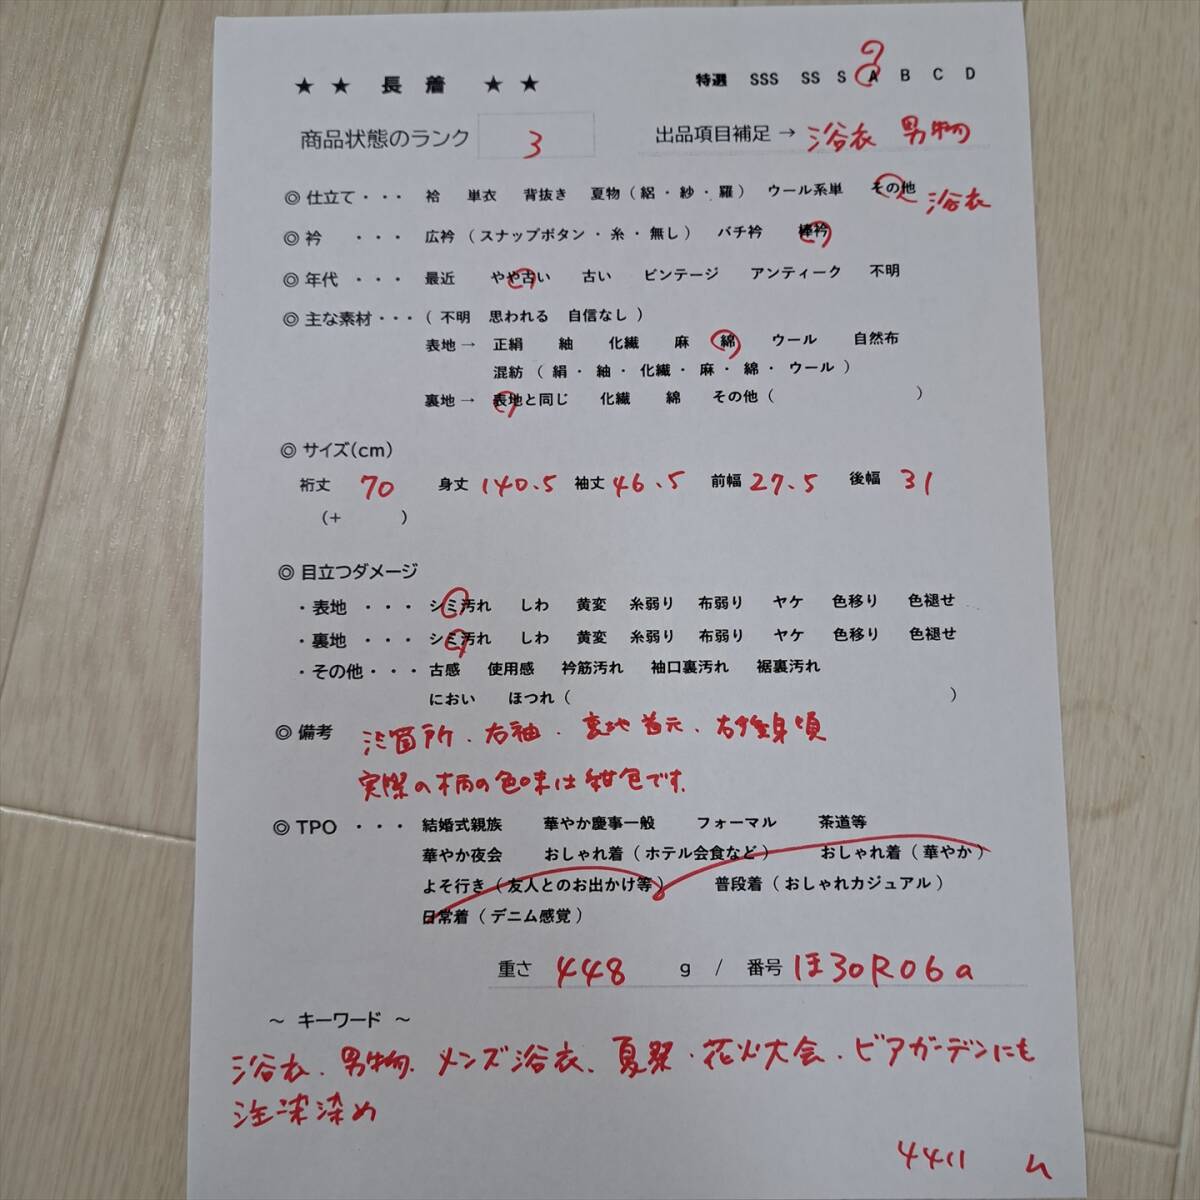 ★ ★ 長 着 ★ ★
特選 SSS SS S A B C D
商品状態のランク 3 出品項目補足 → 浴衣 男物
◎ 仕立て・・・ 袷 単衣 背抜き 夏物（絽・紗・羅） ウール系単 その他 浴衣
◎ 衿 ・・・ 広衿（スナップボタン・糸・無し） バチ衿 棒衿
◎ 年代 ・・・ 最近 やや古い 古い ビンテージ アンティーク 不明
◎ 主な素材・・・（不明 思われる 自信なし）
表地→ 正絹 紬 化繊 麻 綿 ウール 自然布
混紡（絹・紬・化繊・麻・綿・ウール）
裏地→ 表地と同じ 化繊 綿 その他（ ）
◎ サイズ(cm)
裄丈 70 身丈 140.5 袖丈 46.5 前幅 27.5 後幅 31
（+ ）
◎ 目立つダメージ
・表地 ・・・ シミ汚れ しわ 黄変 糸弱り 布弱り ヤケ 色移り 色褪せ
・裏地 ・・・ シミ汚れ しわ 黄変 糸弱り 布弱り ヤケ 色移り 色褪せ
・その他・・・ 古感 使用感 衿筋汚れ 袖口裏汚れ 裾裏汚れ
におい ほつれ（ ）
◎ 備考 箇所、右袖、裏地首元、右後身頃
実際の柄の色味は紺色です。
◎ TPO ・・・ 結婚式親族 華やか慶事一般 フォーマル 茶道等
華やか夜会 おしゃれ着（ホテル会食など） おしゃれ着（華やか）
よそ行き（友人とのお出かけ等） 普段着（おしゃれカジュアル）
日常着（デニム感覚）
重さ 448 g / 番号 ほ30R06a
～ キーワード ～
浴衣、男物、メンズ浴衣、夏祭、花火大会、ビアガーデンにも
注染染め
4411 ム